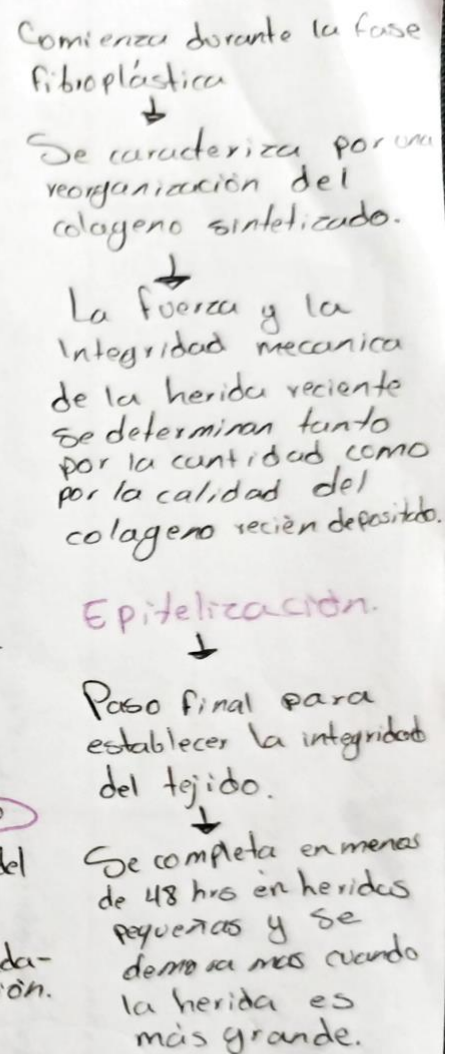 Comienza durante la fase
fibroplástica
Se caracteriza por una
reorganización del
colageno sintetizado.
La fuerza y la
Integridad mecanica
de la herida reciente
se determinan tanto
por la cantidad como
por la calidad del
colageno recién depositado.
Epitelización.
Paso final para
establecer la integridad
del tejido.
Se completa en menos
de 48 hrs en heridas
pequeñas y se
demora mas cuando
la herida es
más grande.
del
da-
ón.